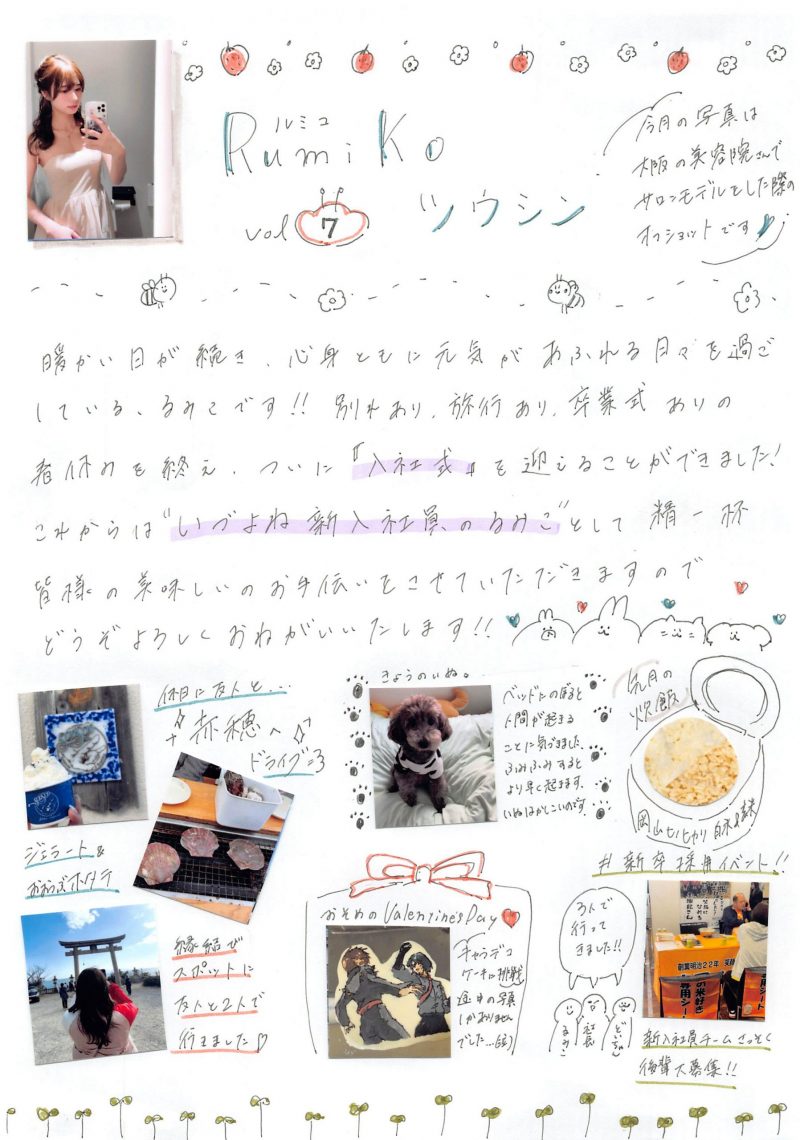 ルミコ
RumiKo
vol 7 ツウシン
今月の写真は
大阪の美容院さんで
サロンモデルをした際の
オフショットです
暖かい日が続き、心身ともに元気があふれる日々を過ご
している、るみこです!! 別れあり、旅行あり、卒業式ありの
春休みを終え、ついに『入社式』を迎えることができました!
これからは"いづよね新入社員のるみこ"として精一杯
皆様の美味しいのお手伝いをさせていただきますので
どうぞよろしくおねがいいたします!!
休日に友人と...
赤穂へ
ドライブ
ジェラート&
おおつぶホタテ
縁結び
スポットに
友人と2人で
行きました♡
きょうのいぬ。
ベッドにのぼると
人間が起きる
ことに気づきました。
ふみふみすると
より早く起きます。
いぬはかしこいのです。
今月の
炊飯
岡山ヒノヒカリ 白米&玄米
おそめのValentine's Day
キャラデコ
ケーキに挑戦
途中の写真
しかありません
でした...(泣)
#新卒採用イベント!!
3人で
行って
きました!!
るみこ
社長
創業明治22年
の米好き
専用シート
新入社員チームさっそく
後輩大募集!!